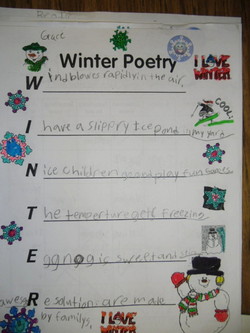 Grace
Winter Poetry
I LOVE WINTER
Wind blows rapidly in the air,
COOL!
I have a slippery Ice pond in my yard
Nice children good play fun games
The temperture gets Freezing
Eggnog ic sweet and
Resolutions are made
by familys,
I LOVE WINTER